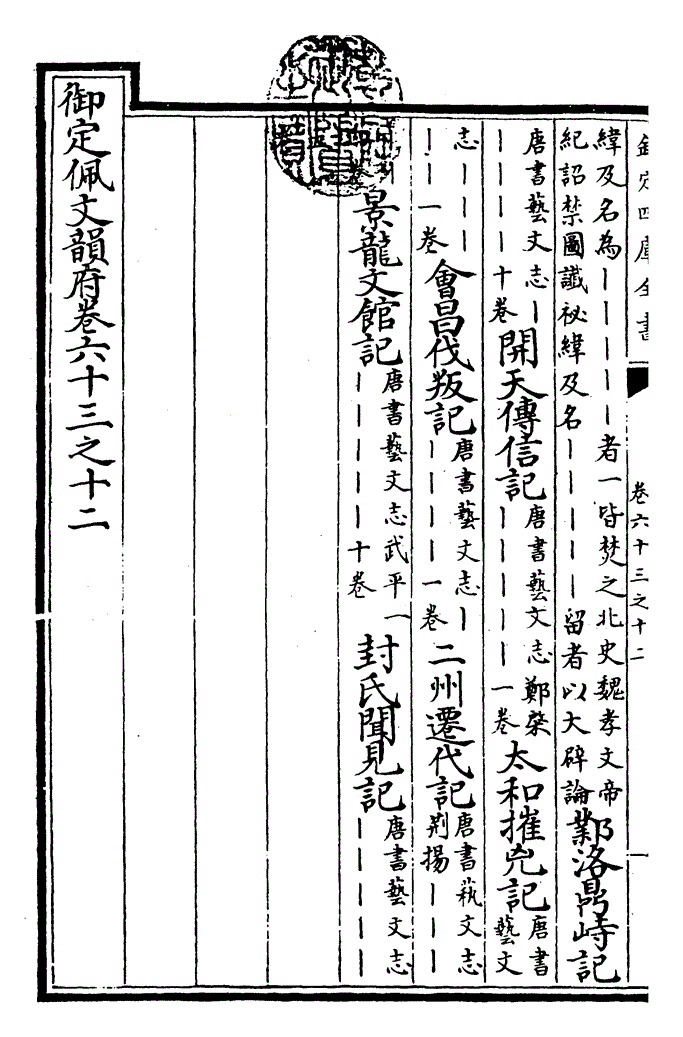 欽定四庫全書 卷六十三之十二
緯及名為｜｜｜｜｜者一皆焚之北史魏孝文帝
紀詔禁圖讖祕緯及名｜｜｜｜｜留者以大辟論 鄴洛鼎峙記
唐書藝文志｜
｜｜｜｜十卷 開天傳信記 唐書藝文志鄭棨
｜｜｜｜｜一卷 太和摧兇記 唐書
藝文
志｜｜｜
｜｜一卷 會昌伐叛記 唐書藝文志｜
｜｜｜｜一卷 二州遷代記 唐書蓺文志
荆揚｜｜｜
卷 景龍文館記 唐書藝文志武平一
｜｜｜｜｜十卷 封氏聞見記 唐書藝文志
｜｜｜｜｜
御定佩文韻府卷六十三之十二